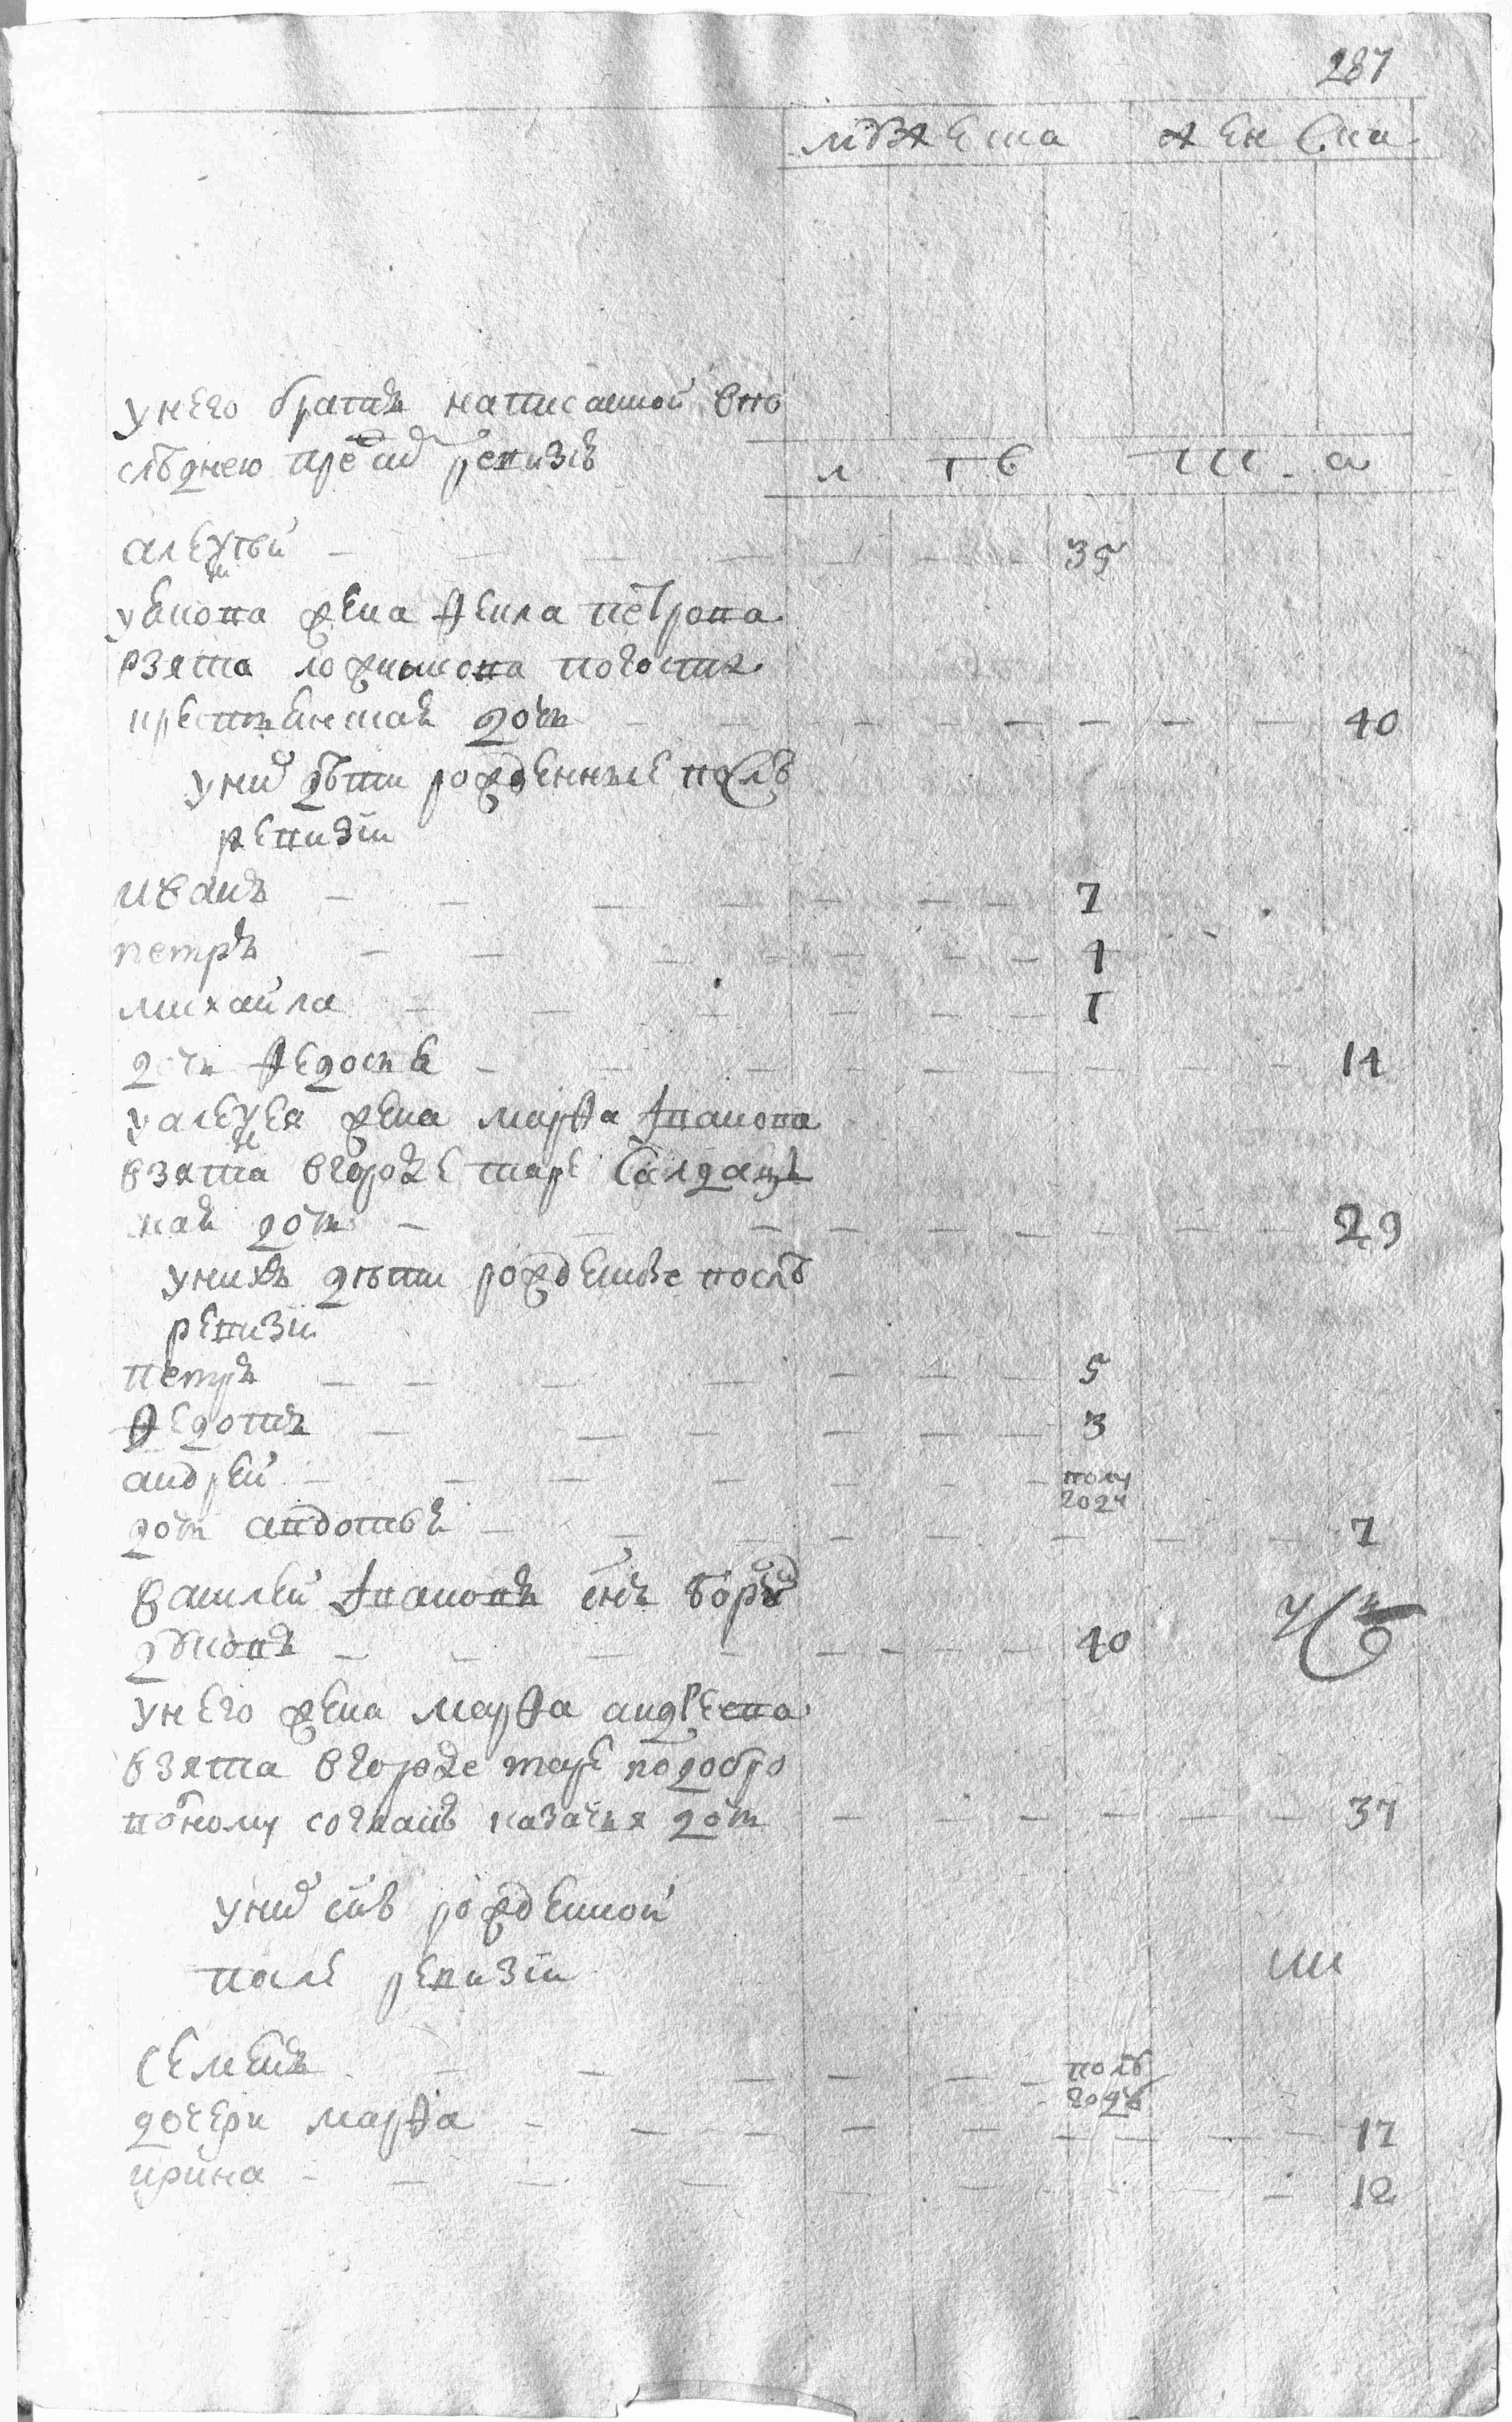 287
мꙋжеска женска
у него братъ написанной впо
слѣднею пред сим ревизïю
л тв та
алеѯѣй 35
у яко жена Фекла петрова
взята погоста
крестьянская дочь 40
у них дѣти рожденные послѣ
ревизïи
иванъ 7
петръ 4
михаила 1
дочь Федосья 14
у алеѯея жена марфа иванова
взята вгородѣ таре салдацъ
кая дочь 29
у нихъ дѣти рожденные послѣ
ревизïи
петръ 5
Федотъ 3
андрей полу
году
дочь авдотья 7
василей ивановъ снъ
40
у него жена марфа андреева
взята вгороде таре подобро
волному согласию казачья дочь 37
у них снъ рожденной
после ревизïи
семенъ полъ
году
дочери марфа 17
ирина 12